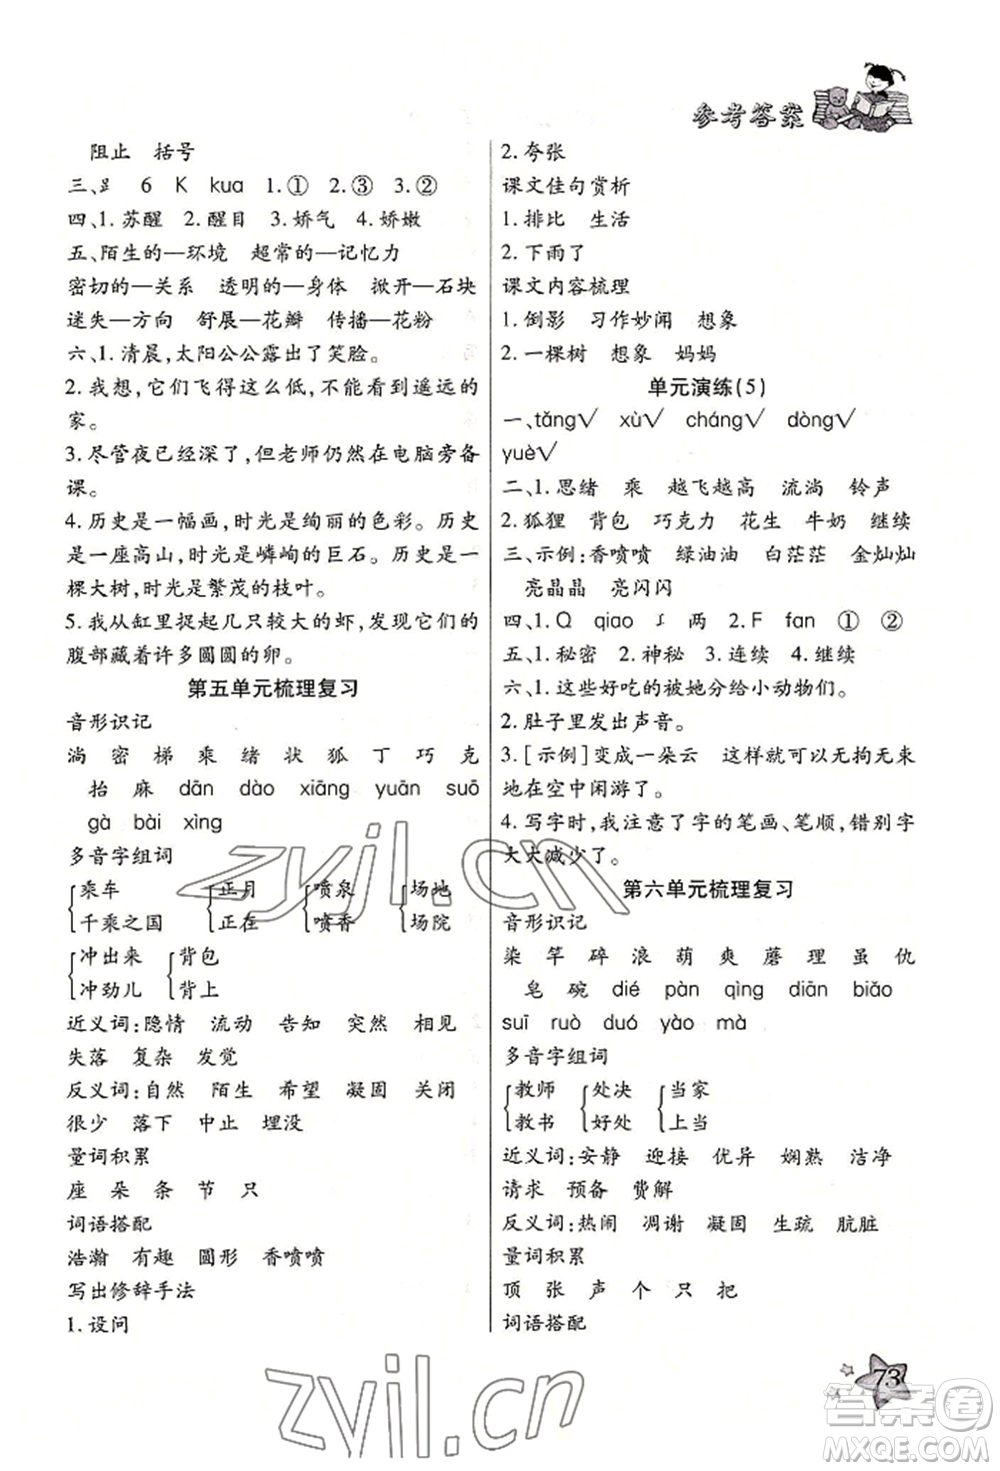 参考答案
阻止 括号
三、 6 K kua 1.① 2.③ 3.②
四、1.苏醒 2.醒目 3.娇气 4.娇嫩
五、陌生的—环境 超常的—记忆力
密切的—关系 透明的—身体 掀开—石块
迷失—方向 舒展—花瓣 传播—花粉
六、1.清晨,太阳公公露出了笑脸。
2.我想,它们飞得这么低,不能看到遥远的
家。
3.尽管夜已经深了,但老师仍然在电脑旁备
课。
4.历史是一幅画,时光是绚丽的色彩。历史
是一座高山,时光是嶙峋的巨石。历史是一
棵大树,时光是繁茂的枝叶。
5.我从缸里捉起几只较大的虾,发现它们的
腹部藏着许多圆圆的卵。
第五单元梳理复习
音形识记
淌 密 梯 乘 绪 状 狐 丁 巧 克
抬 麻 dān dào xiāng yuān suō
gà bài xìng
多音字组词
乘车 正月 喷泉 场地
千乘之国 正在 喷香 场院
冲出来 背包
冲劲儿 背上
近义词:隐情 流动 告知 突然 相见
失落 复杂 发觉
反义词:自然 陌生 希望 凝固 关闭
很少 落下 中止 埋没
量词积累
座 朵 条 节 只
词语搭配
浩瀚 有趣 圆形 香喷喷
写出修辞手法
1.设问
2.夸张
课文佳句赏析
1.排比 生活
2.下雨了
课文内容梳理
1.倒影 习作妙闻 想象
2.一棵树 想象 妈妈
单元演练(5)
一、tǎng√ xù√ cháng√ dòng√
yuè√
二、1.思绪 乘 越飞越高 流淌 铃声
2.狐狸 背包 巧克力 花生 牛奶 继续
三、示例:香喷喷 绿油油 白茫茫 金灿灿
亮晶晶 亮闪闪
四、1.Q qiao 两 2.F fan ① ②
五、1.秘密 2.神秘 3.连续 4.继续
六、1.这些好吃的被她分给小动物们。
2.肚子里发出声音。
3.[示例]变成一朵云 这样就可以无拘无束
地在空中闲游了。
4.写字时,我注意了字的笔画、笔顺,错别字
大大减少了。
第六单元梳理复习
音形识记
染 竿 碎 浪 葫 爽 蘑 理 虽 仇
皂 碗 dié pàn qìng diān biǎo
suī ruò duó yào mà
多音字组词
教师 处决 当家
教书 好处 上当
近义词:安静 迎接 优异 娴熟 洁净
请求 预备 费解
反义词:热闹 凋谢 凝固 生疏 肮脏
量词积累
顶 张 声 个 只 把
词语搭配
73
zyjl.cn
zyjl.cn
答案圈
MXQE.COM